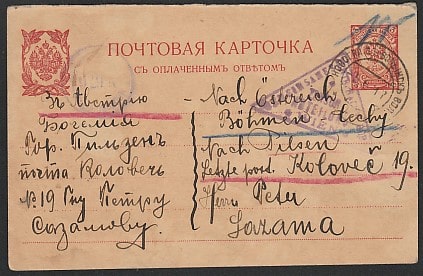 ПОЧТОВАЯ КАРТОЧКА
СЪ ОПЛАЧЕННЫМЪ ОТВѢТОМЪ
Въ Австрію
Богемія
Гор. Пильзенъ
почта Коловечь
№ 19 Гну Петру
Сазамову
Nach Österreich
Böhmen Čechy
Nach Pilsen
Letzte post. Koloveč 19.
Herrn Peter
Sazama